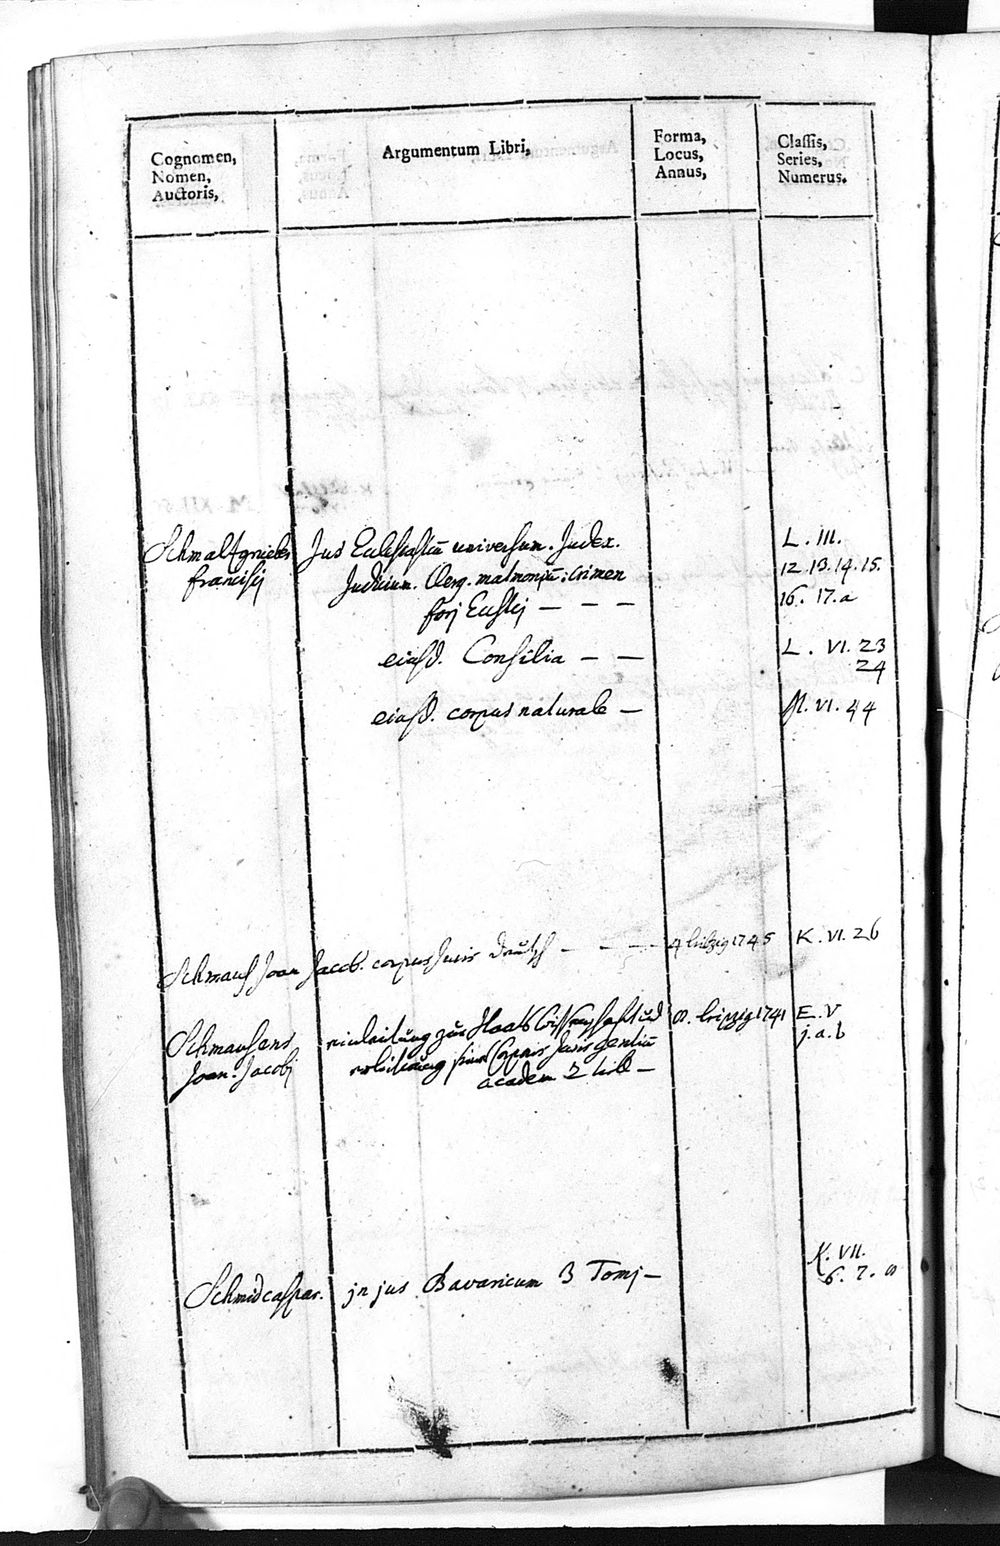 Cognomen,
Nomen,
Auctoris,
Argumentum Libri,
Forma,
Locus,
Annus,
Classis,
Series,
Numerus.
Schmaltgrueber
francisci
Jus Ecclesiasticū universum. Judex.
Judicium. Clerg. matrimoniū: Crimen
forj Ecclstj — — —
L. III.
12. 13. 14. 15.
16. 17. a
eiusd. Consilia — —
L. VI. 23
24
eiusd. corpus naturale —
VI. 44
Schmaus Joan Jacob. corpus Juris deutsch — — — 4 leibzig 1745 K. VI. 26
Schmausens
Joan. Jacobj
einleitung zur Staats Wissenschaft und
erleiterung seines Corporis Juris gentiū
academ 2 tili —
8. leipzig 1741
E. V
j. a. b
Schmid caspar. jn jus Bavaricum 3 Tomj —
K. VII.
6. 7. 8